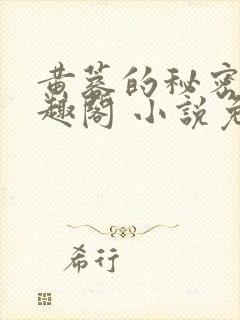 黄墓的秘密
趣阁 小说免
希行